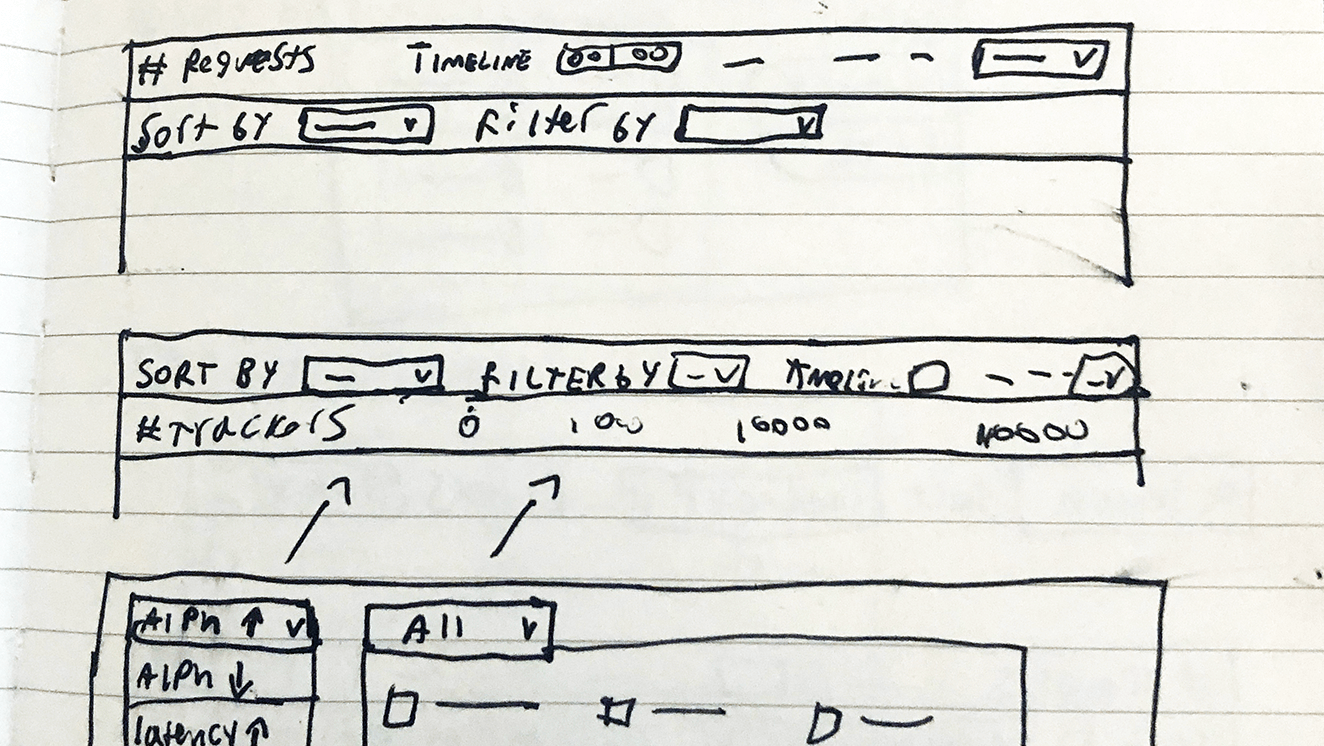 # Requests TIMELINE
Sort by Filter by
SORT BY FILTER BY Timeline
# Trackers 0 100 10000 40000
Alph ↑ All
Alph ↓
latency ↑